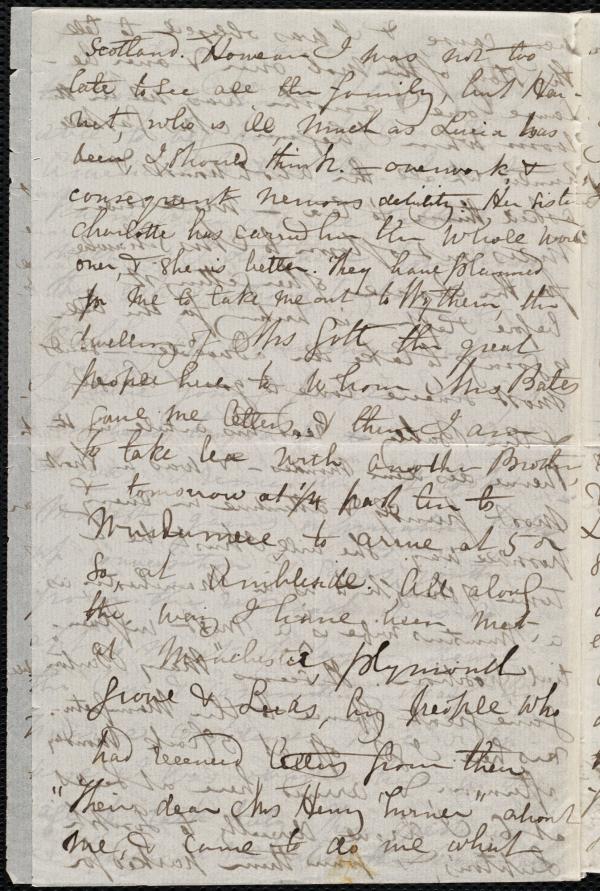 Scotland. However I was not too
late to see all the family, but Har-
riet, who is ill, much as Lucia has
been, I should think. – overwork &
consequent nervous debility. Her sister
Charlotte has carried her the whole work
over, & she is better. They have planned
for me to take me out to Wythern, the
dwelling of Mrs Gott the great
people here to whom Mrs Bates
gave me letters, & there I am
to take tea with another Brother,
& tomorrow at 1/4 past ten to
Windermere to arrive at 5 or
so, at Ambleside. All along
the way I have been met
at Manchester, Plymouth
Grove & Leeds, by people who
had received letters from then
"Their dear Mrs Henry Turner" about
me, & came to do me what